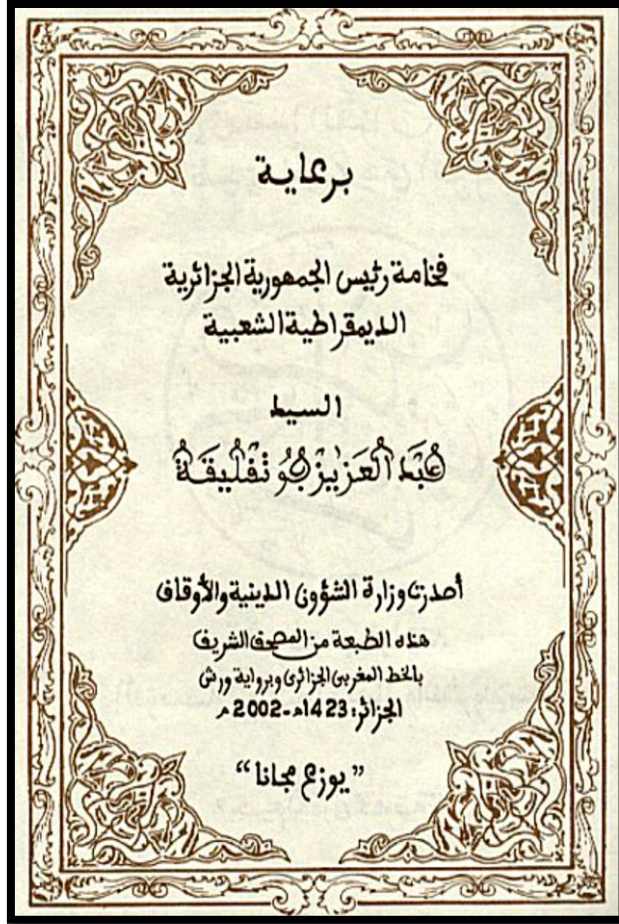 برعاية
فخامة رئيس الجمهورية الجزائرية
الديمقراطية الشعبية
السيد
عَبْدُ الْعَزِيزْ بُوتَفْلِيقَةُ
أصدرت وزارة الشؤون الدينية والأوقاف
هذه الطبعة من المصحف الشريف
بالخط المغربي الجزائري وبرواية ورش
الجزائر: 1423هـ - 2002م
”يوزع مجانا“